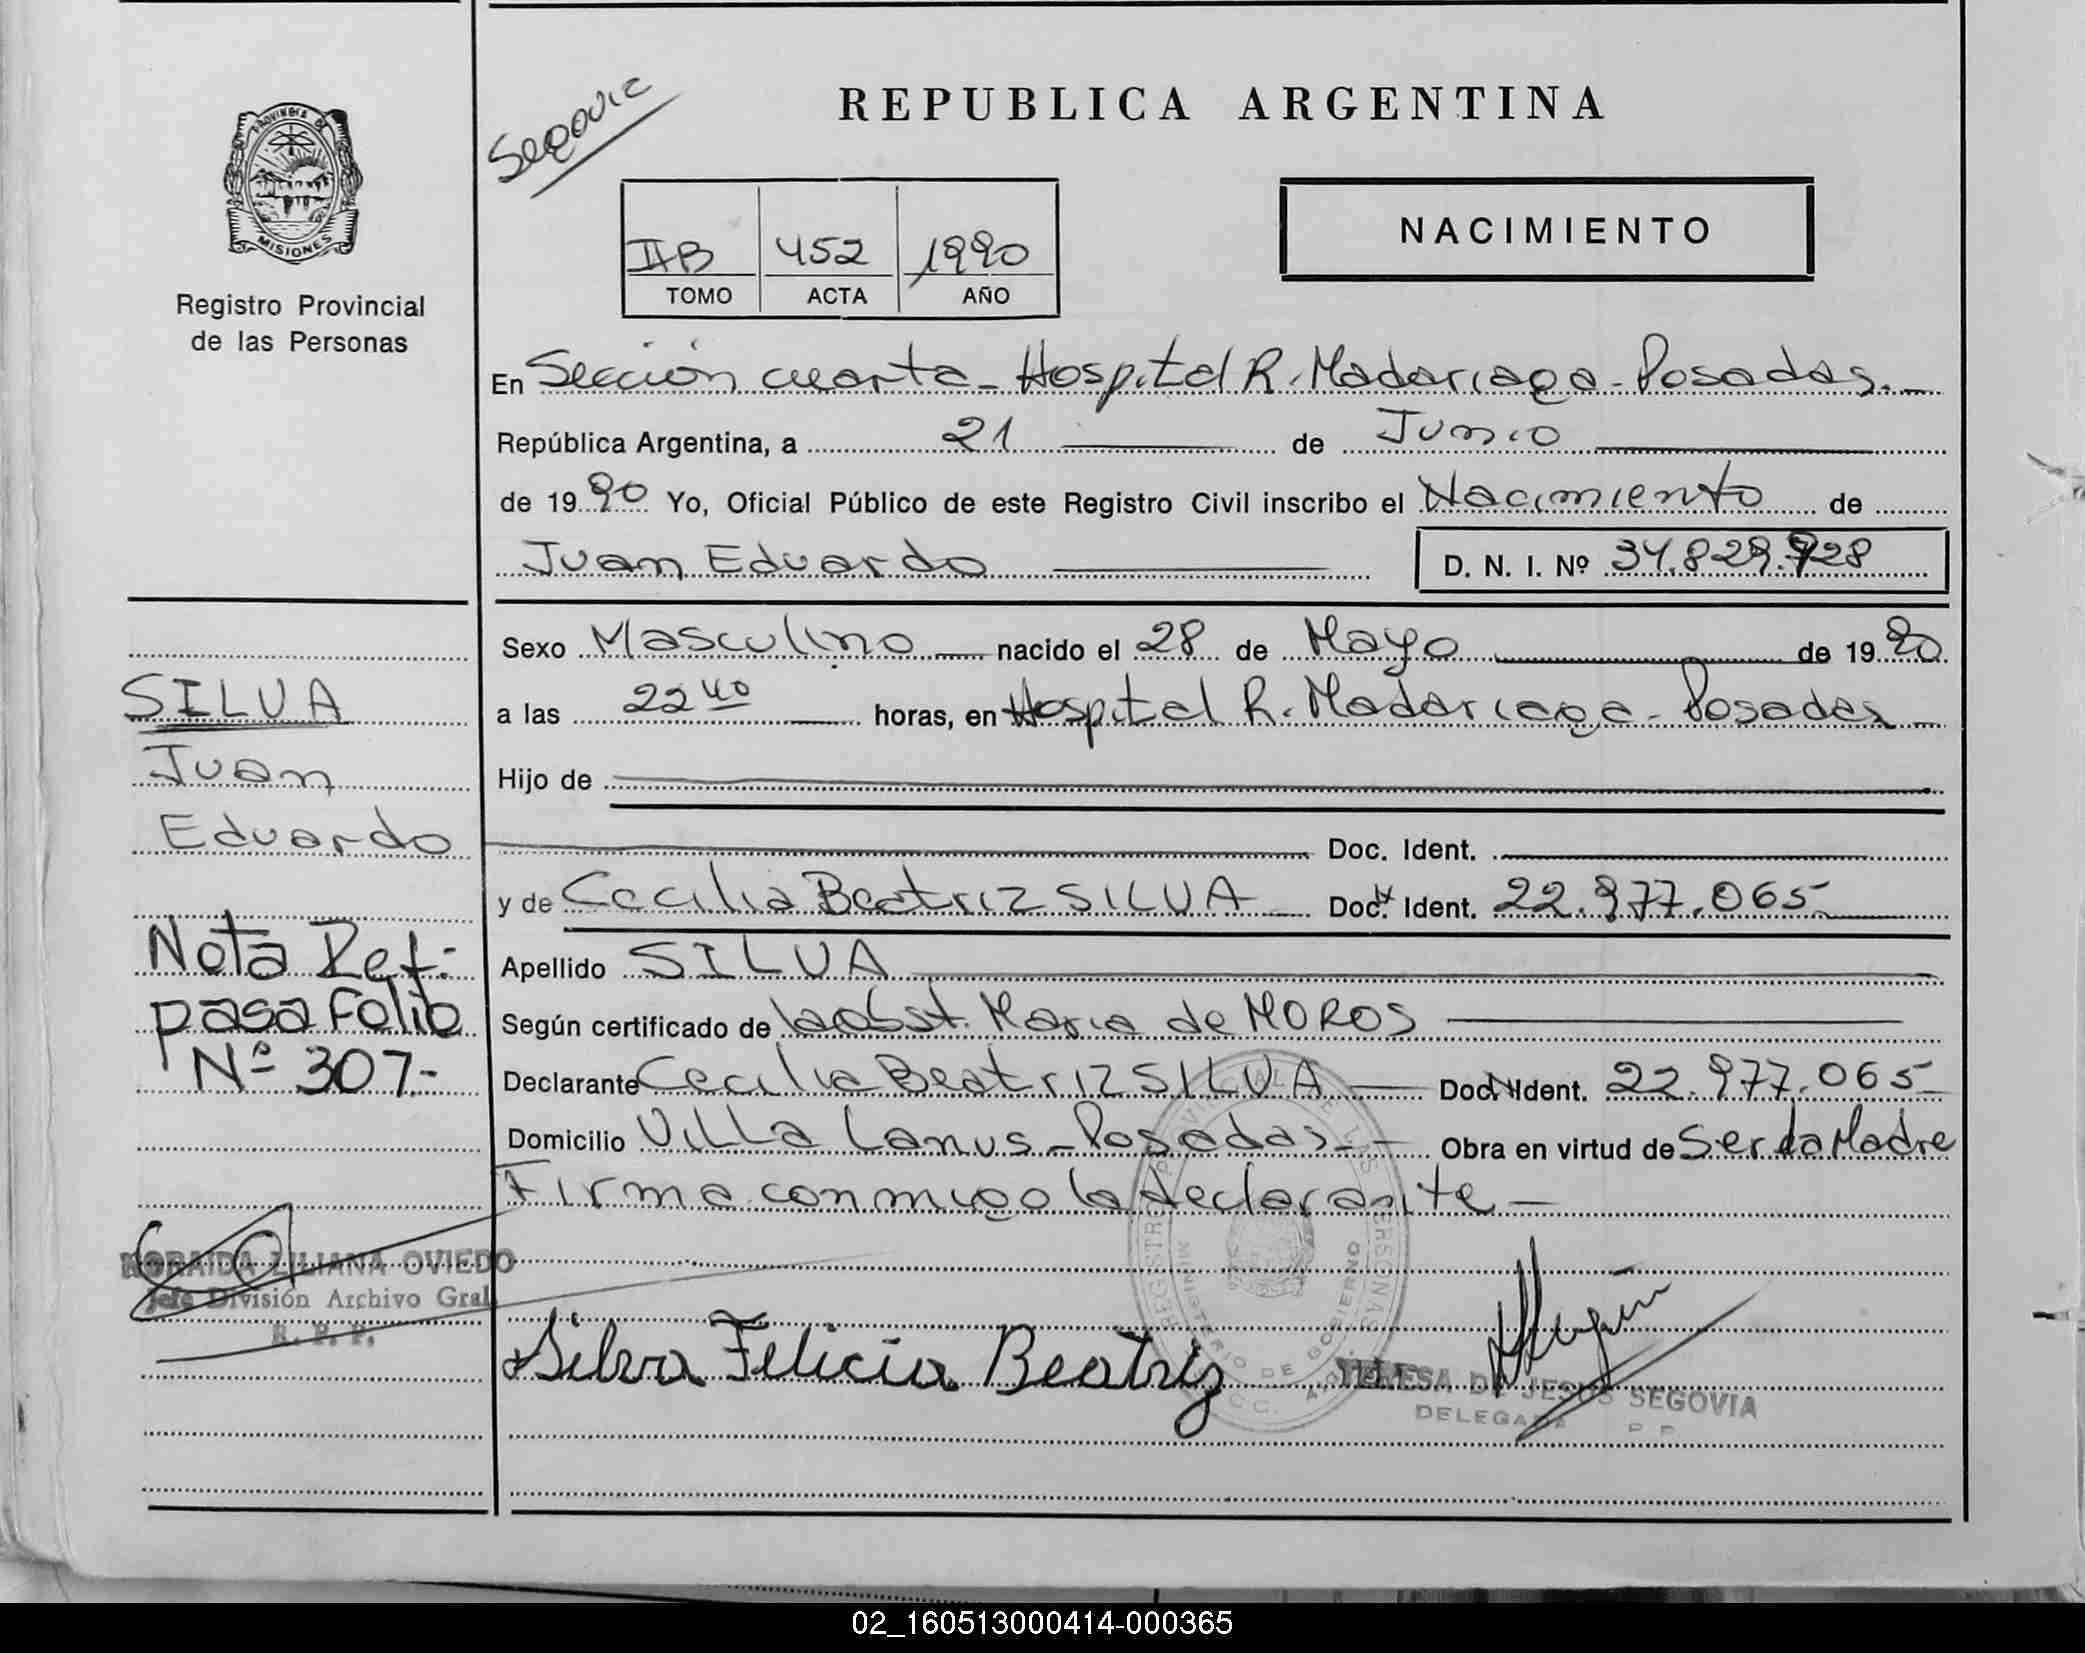 Segovia
REPUBLICA ARGENTINA
PROVINCIA DE
MISIONES
Registro Provincial
de las Personas
II B 452 1990
TOMO ACTA AÑO
NACIMIENTO
En Sección cuarta - Hospital R. Madariaga - Posadas. -
República Argentina, a 21 de Junio
de 1990 Yo, Oficial Público de este Registro Civil inscribo el Nacimiento de
Juan Eduardo D. N. I. Nº
Sexo Masculino nacido el 28 de Mayo de 1990
a las 22 40 horas, en Hospital R. Madariaga - Posadas -
Hijo de
Doc. Ident.
y de Cecilia Beatriz SILVA Doc. Ident. 22.977.065
Apellido SILVA
Según certificado de la obst. Maria de MOROS
Declarante Cecilia Beatriz SILVA Doc. Ident. 22.977.065
Domicilio Villa Lanus - Posadas - Obra en virtud de Ser la Madre
Firma conmigo la declarante -
SILVA
Juan
Eduardo
Nota Ref:
pasa Folio
Nº 307-
NORAIDA LILIANA OVIEDO
Jefe División Archivo Gral
R. P. P.
Silva Felicia Beatriz
MINISTERIO DE GOBIERNO
TERESA DE JESUS SEGOVIA
DELEGADA
02_160513000414-000365